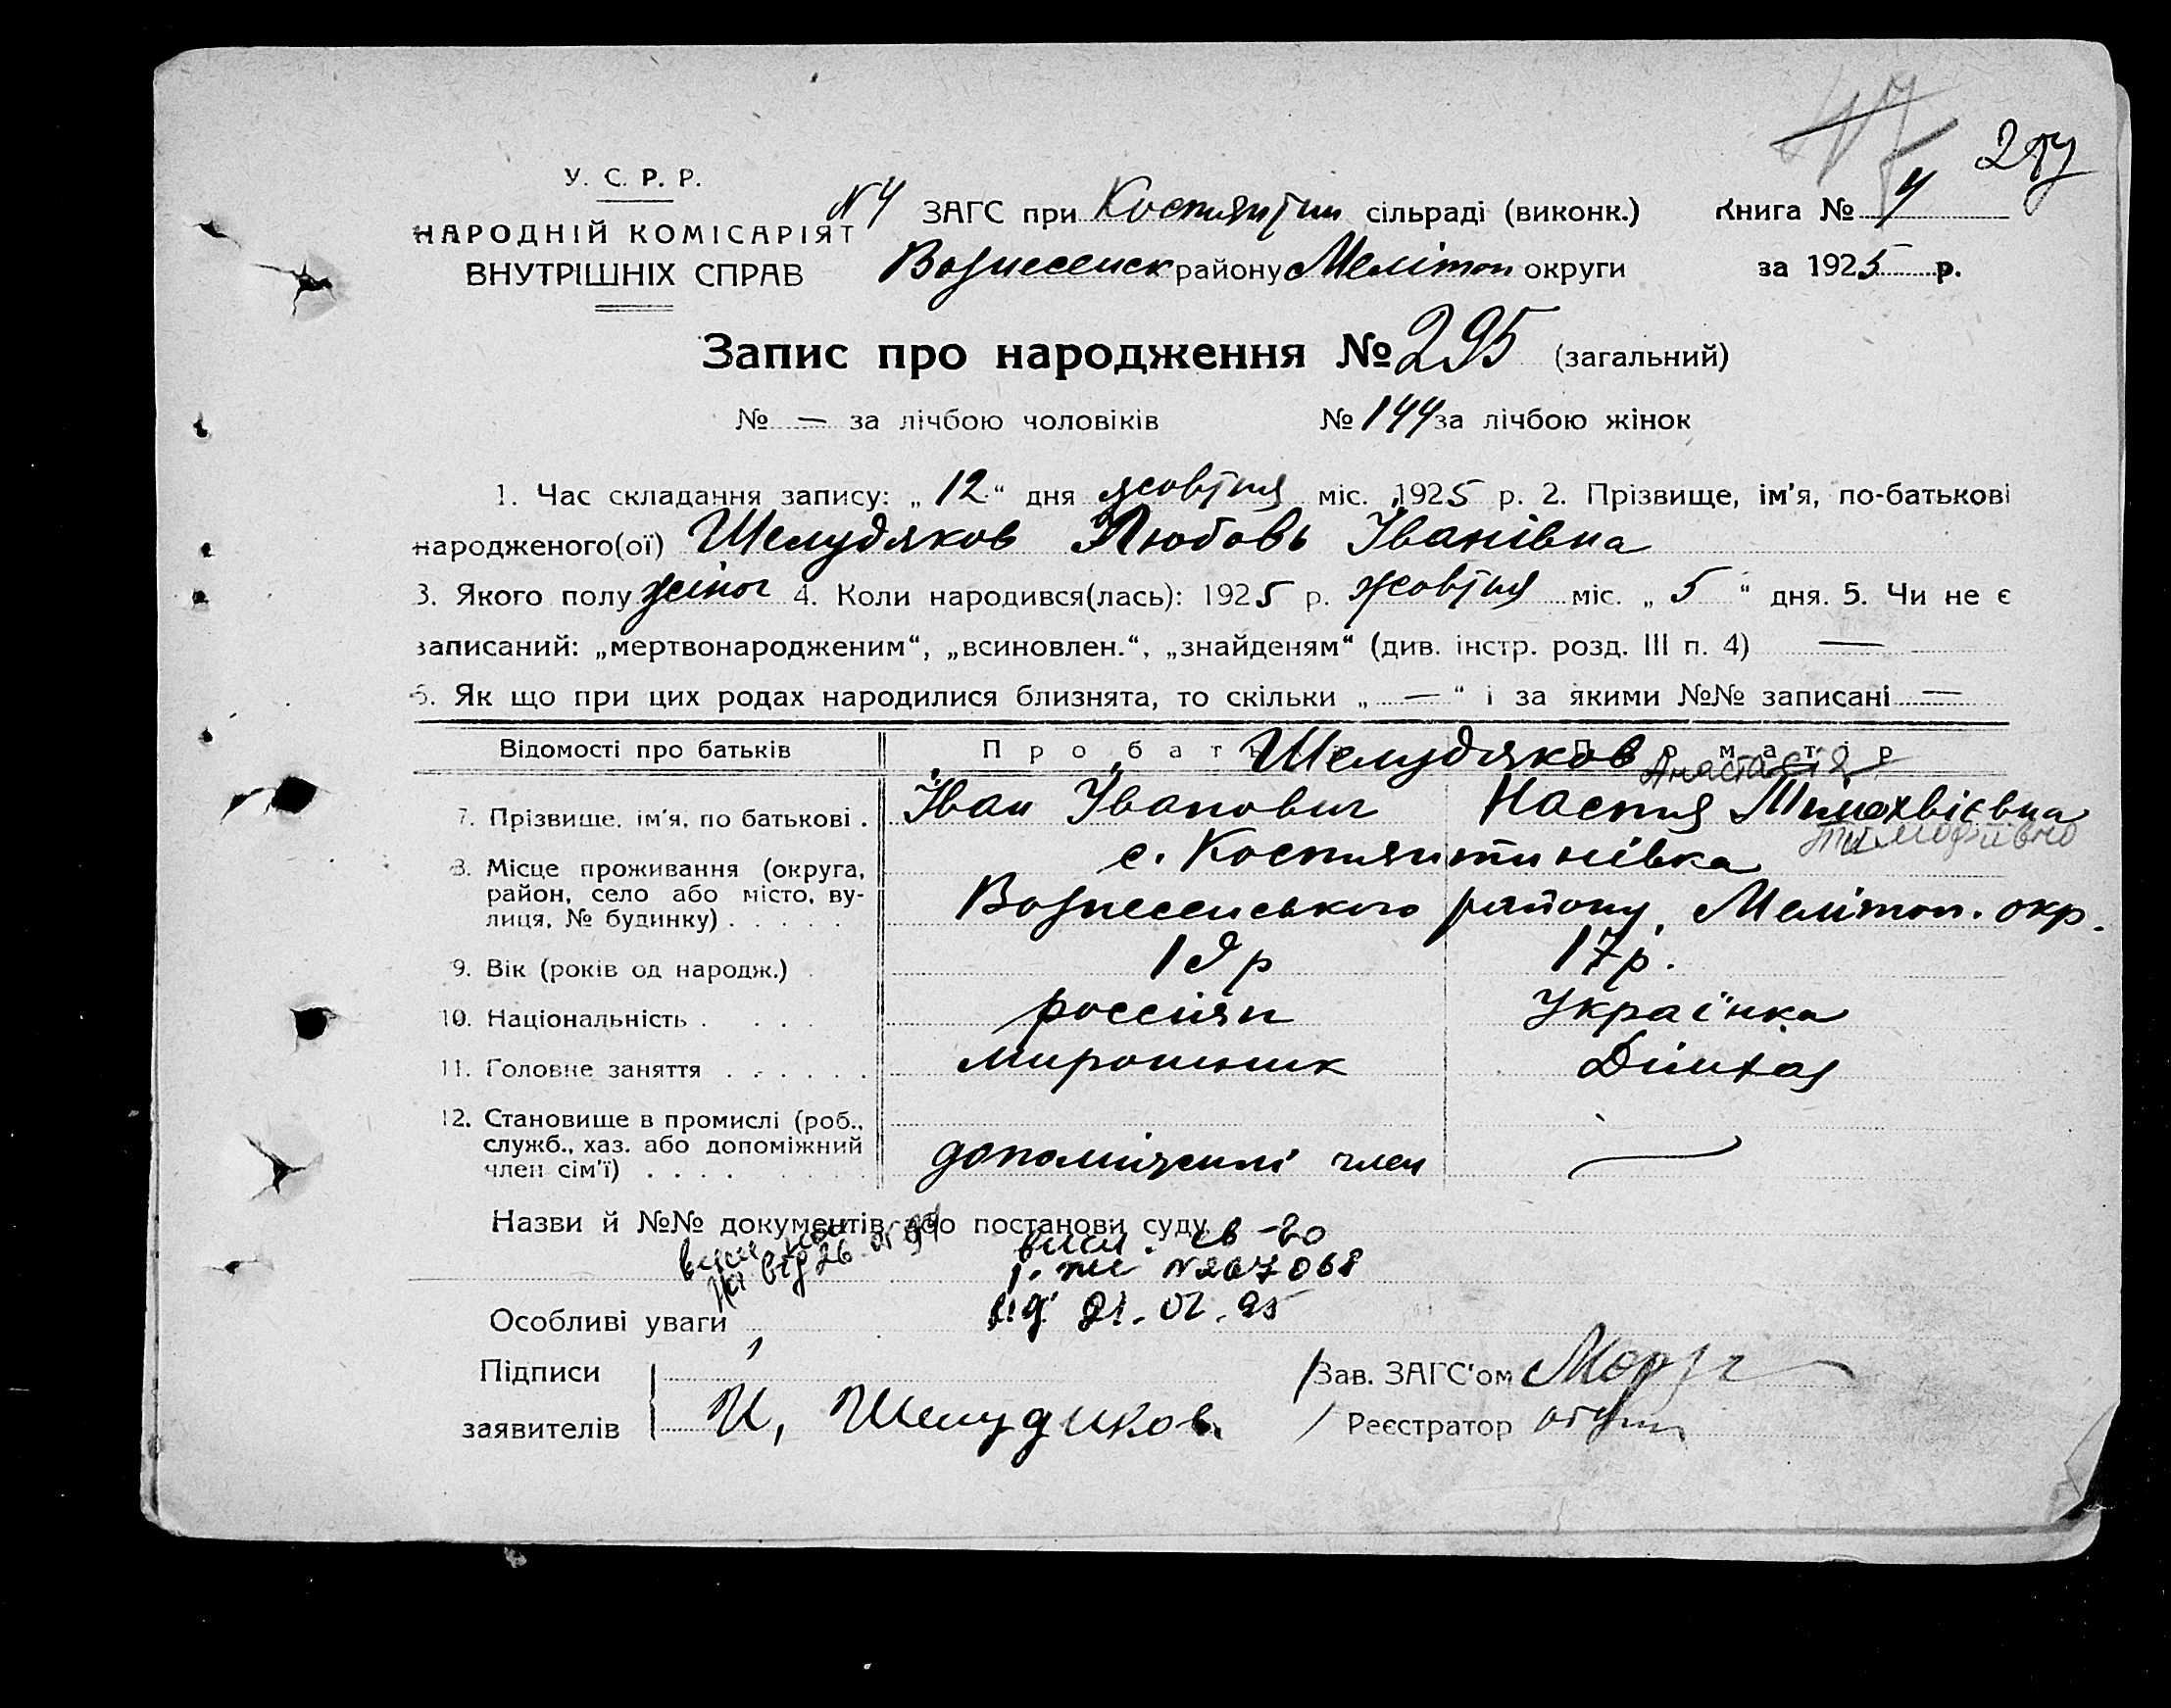 У. С. Р. Р.
НАРОДНІЙ КОМІСАРІЯТ
ВНУТРІШНІХ СПРАВ
№4 ЗАГС при Костянтин сільраді (виконк.)
Вознесенск району Меліtоп округи
Книга № 4
за 1925 р.
Запис про народження № 295 (загальний)
№ — за лічбою чоловіків № 144 за лічбою жінок
1. Час складання запису: „12“ дня жовтня міс. 1925 р. 2. Прізвище, ім'я, по-батькові
народженого(ої) Шелудяков Любовь Іванівна
3. Якого полу жіноч 4. Коли народився(лась): 1925 р. жовтня міс. „5“ дня. 5. Чи не є
записаний: „мертвонародженим“, „всиновлен.“, „знайденям“ (див. інстр. розд. III п. 4) —
6. Як що при цих родах народилися близнята, то скільки „—“ і за якими №№ записані —
Відомості про батьків
Шелудяков
Анастасія
7. Прізвище, ім'я, по батькові . Іван Іванович Настя Тимохвієвна
Тимофіївна
8. Місце проживання (округа, район, село або місто, вулиця, № будинку) . . . . .
с. Костянтинівка
Вознесенського району, Меліtоп. окр.
9. Вік (років од народж.) . 19р 17р.
10. Національність . . . . россіян Українка
11. Головне заняття . . . . . . мирошник Дімхаз
12. Становище в промислі (роб., служб., хаз. або допоміжний член сім'ї) . . . . допоміжний член —
Назви й №№ документів або постанови суду
№267068
21.02.95
Особливі уваги
Підписи
заявителів
И, Шелудяков
Зав. ЗАГС'ом
Реєстратор